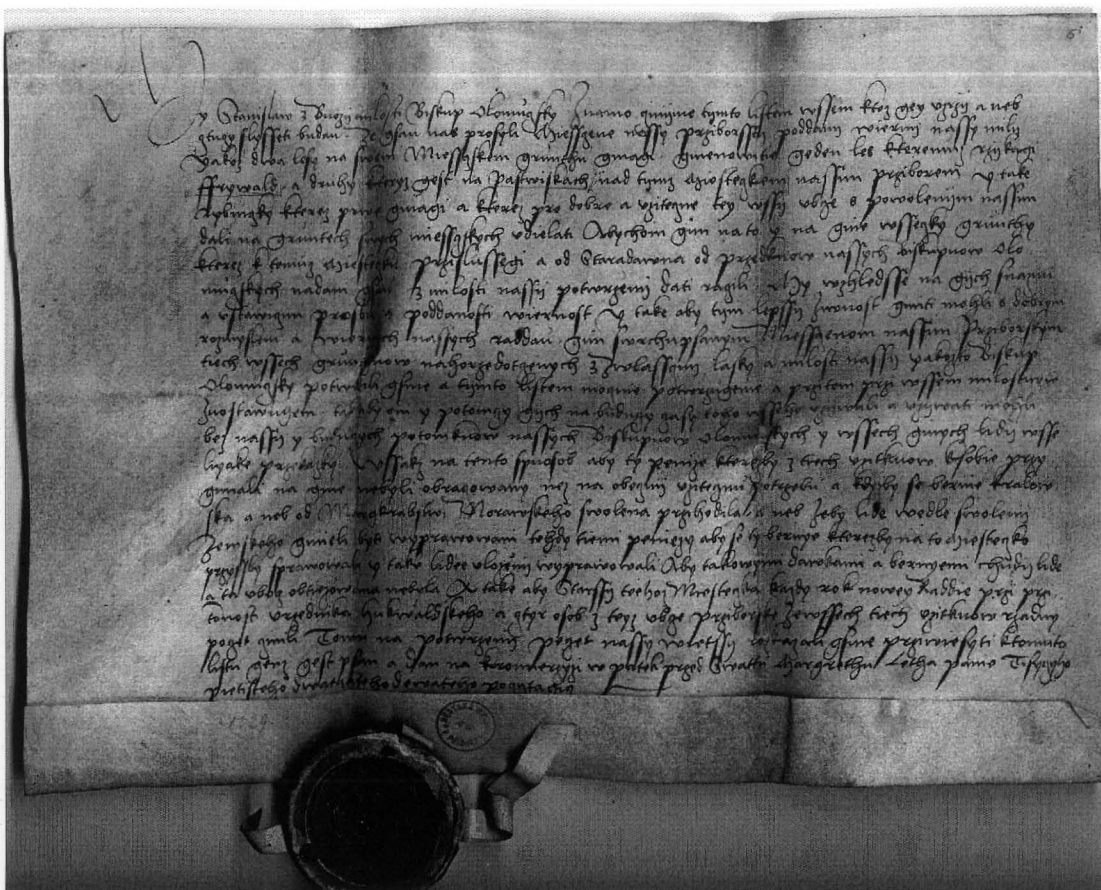 y Stanislaw z Buozij milosti Biskup Olomuczky Znamo czinime tymto listem wssem ktoz geg vzrzij a neb
gtuczy slysseti budau Ze gsau nas prosyli Miessczene nassy Przyborssczy poddanij wiernij nassy milij
yakoz dwa lesy na swem Miesstskem gruntu magi gmenowitie geden les kteremuz rzijkagi
ffrywald a druhy kteryz gest na Pastwiskach nad tymz Miesteczkem nassim Przyborem y take
Rybniczky kterez prwe magi a kterez pro dobre a vzitecne tey wssij obcze s powolenijm nassim
dali na gruntech swych miestskych vdielati Abychom gim na to y na gine wsseczky grunthy
kterez k tomuz Miesteczku przislussegi a od Staradawna od przedkuow nassych Biskupuow Olo
muczkych nadani gsau z milosti nassij potwrzenij dati raczili My wzhledsse na gich snaznu
a vstawicznu prosbu a poddanosti wiernost y take aby tym lepssij ziwnost mieti mohli s dobrym
rozmyslem a wiernych nassych raddau gim swrchupsanym Miesstienom nassim Przyborskym
tiech wssech gruntuow nahorzedotczenych z zwlasstnij lasky a milosti nassij yakozto Biskup
Olomuczky potwrdili gsme a tijmto listem moczne potwrzugeme a przitom przi wssem milostiwie
zuostawugem tak aby oni y potomczy gich na buduczy czasy toho wsseho vziwali a vzijwati mohli
bez nassij y buduczych potomkuow nassych Biskupuow Olomuczkych y wssech ginych lidij wsse
liyake przekazky Wssak na tento spuosob aby ty penize kterezby z tiech vzitkuow k sobie przy
gimali na gine nebyli obraczowany nez na obeczni vzitecznu potrzebu a kdyzby se berne kralow
ska a neb od Margkrabstwij Morawskeho swolena przihodila a neb zeby lide wedle swolenij
zemskeho mieli byti wyprawowani tehdy tiemi peniezy aby se ty bernye kterezby na to Miesteczko
przyssly sprawowali y take lidee wlozeni wyprawowali Aby takowymi dawkami a bernyemi chudij lide
a ta obecz obtiezowana nebyla A take aby Starssij tiehoz Miesteczka kazdy rok nowey Raddie przi przi
tomnost vrzednika Hukwaldskeho a cztyr osob z teyz obcze Przyborske ze wssech tiech vzitkuow rzadny
poczet czinili Tomu na potwrzenij peczet nassy wietssij rozkazali gsme przywiesyti k tomuto
listu genz gest psan a dan na Kromierzyzi w patek przed Swattu Margrethu Letha panie Tisyczyho
pietisteho dwaczateho dewateho pocztagicz
1529